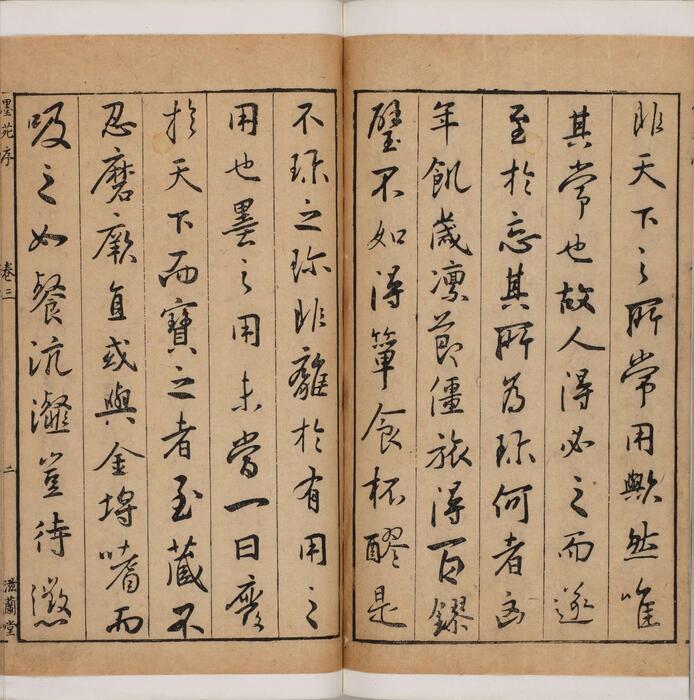 非天下之所常用歟然唯
其常也故人得必之而遂
至於忘其所為珍何者凶
年飢歲凛節僵旅得百鏐
璧不如得簞食杯醪是
不珍之珍非離於有用之
用也墨之用未嘗一日廢
於天下而寶之者至藏不
忍磨厥直或與金埒嗜而
吸之如餐沆瀣豈待懲
墨苑序
卷三
二
滋蘭堂